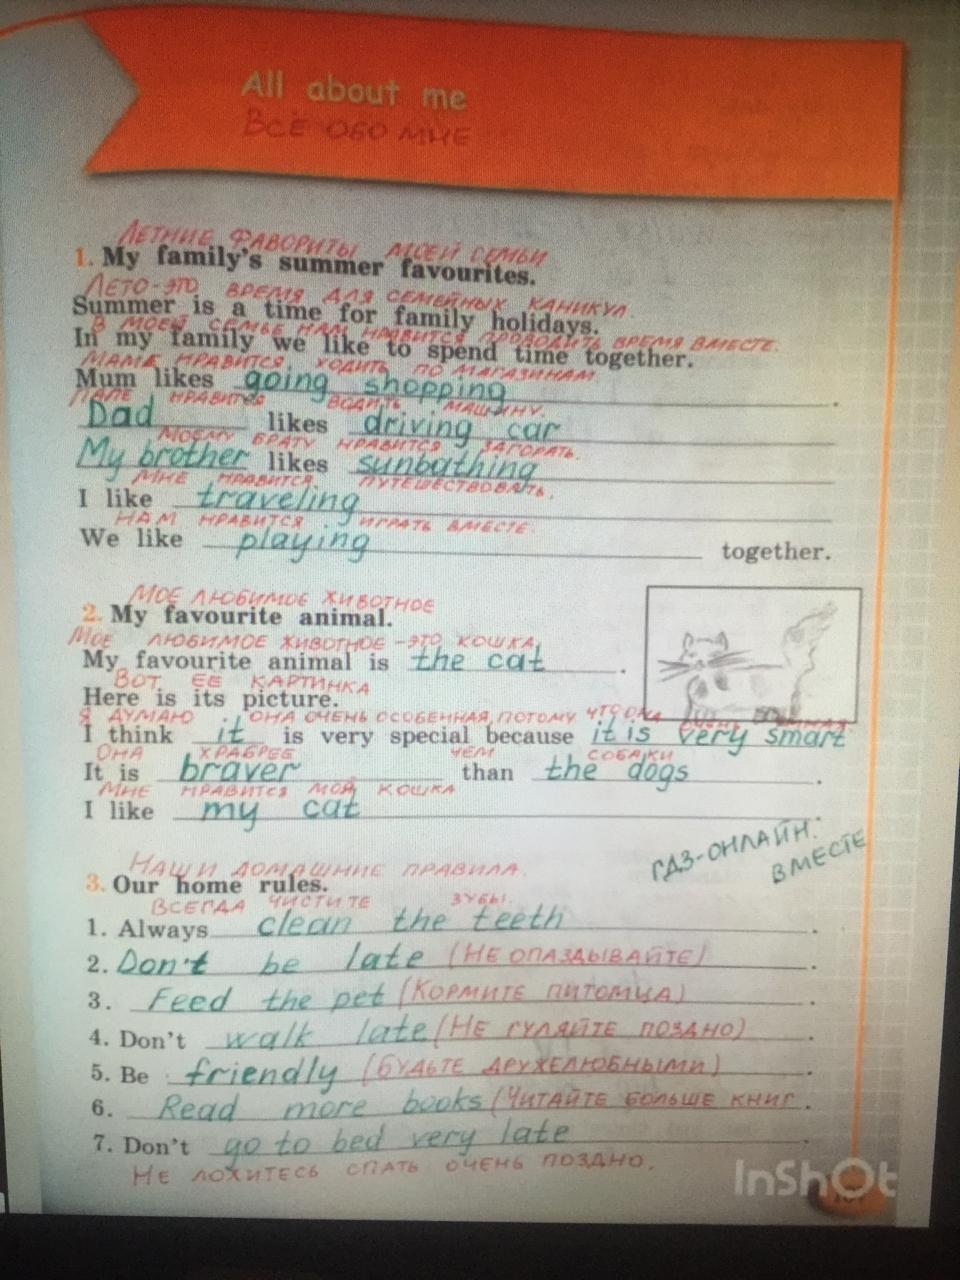 All about me
ВСЁ ОБО МНЕ
ЛЕТНИЕ ФАВОРИТЫ МОЕЙ СЕМЬИ
1. My family's summer favourites.
ЛЕТО-ЭТО ВРЕМЯ ДЛЯ СЕМЕЙНЫХ КАНИКУЛ.
Summer is a time for family holidays.
В МОЕЙ СЕМЬЕ НАМ НРАВИТСЯ ПРОВОДИТЬ ВРЕМЯ ВМЕСТЕ.
In my family we like to spend time together.
МАМЕ НРАВИТСЯ ХОДИТЬ ПО МАГАЗИНАМ
Mum likes going shopping.
ПАПЕ НРАВИТСЯ ВОДИТЬ МАШИНУ.
Dad likes driving car
МОЕМУ БРАТУ НРАВИТСЯ ЗАГОРАТЬ.
My brother likes sunbathing
МНЕ НРАВИТСЯ ПУТЕШЕСТВОВАТЬ.
I like traveling
НАМ НРАВИТСЯ ИГРАТЬ ВМЕСТЕ.
We like playing together.
МОЕ ЛЮБИМОЕ ЖИВОТНОЕ
2. My favourite animal.
МОЕ ЛЮБИМОЕ ЖИВОТНОЕ-ЭТО КОШКА
My favourite animal is the cat.
ВОТ ЕЕ КАРТИНКА
Here is its picture.
Я ДУМАЮ ОНА ОЧЕНЬ ОСОБЕННАЯ, ПОТОМУ ЧТО ОНА ОЧЕНЬ
I think it is very special because it is very smart
ОНА ХРАБРЕЕ ЧЕМ СОБАКИ
It is braver than the dogs.
МНЕ НРАВИТСЯ МОЯ КОШКА
I like my cat.
ГДЗ-ОНЛАЙН.
ВМЕСТЕ
НАШИ ДОМАШНИЕ ПРАВИЛА.
3. Our home rules.
ВСЕГДА ЧИСТИТЕ ЗУБЫ.
1. Always clean the teeth.
2. Don't be late (НЕ ОПАЗДЫВАЙТЕ).
3. Feed the pet (КОРМИТЕ ПИТОМЦА).
4. Don't walk late (НЕ ГУЛЯЙТЕ ПОЗДНО).
5. Be friendly (БУДЬТЕ ДРУЖЕЛЮБНЫМИ).
6. Read more books (ЧИТАЙТЕ БОЛЬШЕ КНИГ.
7. Don't go to bed very late.
НЕ ЛОЖИТЕСЬ СПАТЬ ОЧЕНЬ ПОЗДНО.
InShOt